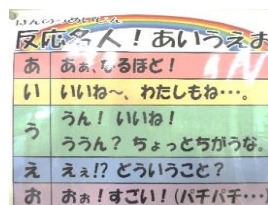 はんのうめいじん
反応名人！あいうえお
あ あぁ、なるほど！
い いいね～、わたしもね…。
う うん！いいね！
ううん？ちょっとちがうな。
え えぇ!?どういうこと？
お おぉ！すごい！(パチパチ…)